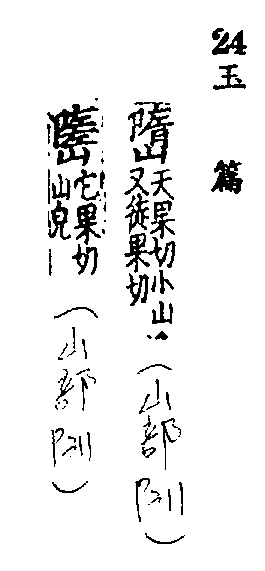 24
玉篇
嶞
天果切小山
又徒果切
(山部
它果切
山皃
(山部